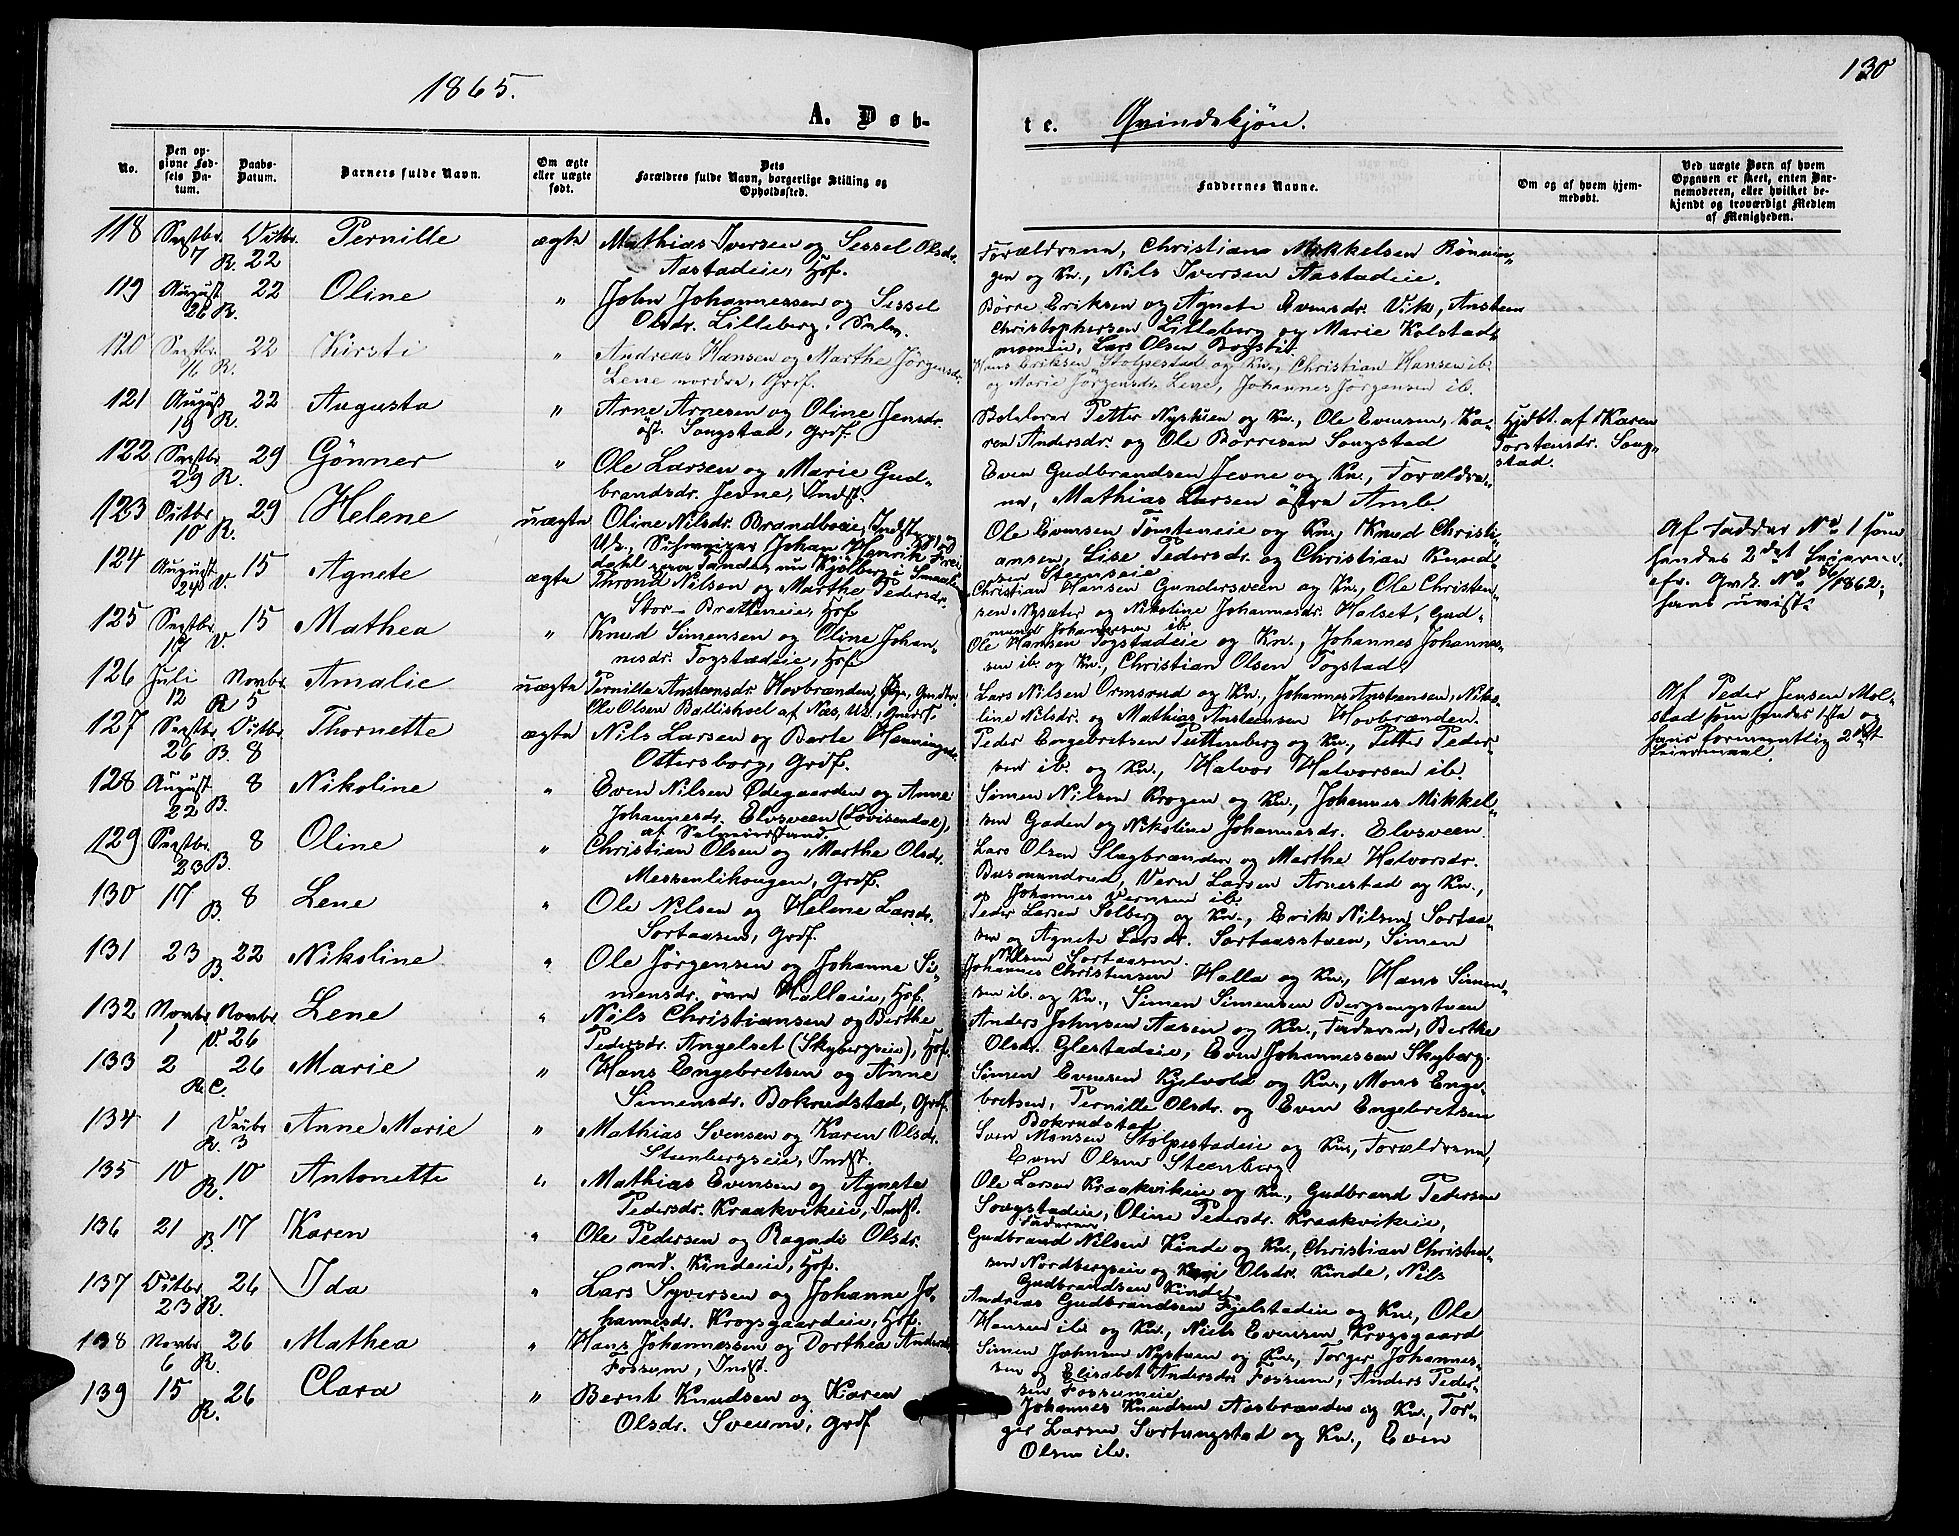 1865.
130
A. Døb-
te. Qvindekjøn.
No.
Den opgivne Fødsels Datum.
Daabs-Datum.
Barnets fulde Navn.
Om ægte eller uægte født.
Dets Forældres fulde Navn, borgerlige Stilling og Opholdssted.
Faddernes Navne.
Om og af hvem hjemmedøbt.
Ved uægte Børn af hvem Opgaven er skeet, enten Barnemoderen, eller hvilket bekjendt og troværdigt Medlem af Menigheden.
118 Septbr. 7 R. Octbr. 22 Pernille ægte Mathias Iversen og Sessel Olsdr.
Aastadeie, Hsf.
Forældrene, Christians Mikkelsen Rønnin-
gen og Kn., Nils Iversen Aastadeie.
119 August 26 R. 22 Oline " John Johannessen og Sissel
Olsdr. Lilleberg, Selv.
Børre Eriksen og Agnete Evensdr. Vik, Ansteen
Christophersen Lilleberg og Marie Kolstad-
moeie, Lars Olsen Bogstie.
120 Septbr. R. 22 Kirsti " Andreas Hansen og Marthe Jørgensdr.
Lene nordre, Grdf.
Hans Eriksen Stolpestad og Kn., Christian Hansen ib.
og Marie Jørgensdr. Lene, Johannes Jørgensen ib.
121 August 19 R. 22 Augusta " Arne Arnesen og Oline Jensdr.
øst. Songstad, Grdf.
Petter Nystuen og Kn., Ole Evensen, Ka-
ren Andersdr. og Ole Børresen Songstad
Hjdbt. af Karen
Torstensdr. Song-
stad.
122 Septbr. 29 R. 29 Gønner " Ole Larsen og Marie Gud-
brandsdr. Jevne, Indst.
Even Gudbrandsen Jevne og Kn., Forældre-
ne, Mathias Larsen østre Amb.
123 Octbr. 10 R. 29 Helene uægte Oline Nilsdr. Brandboeie, Indst. Pige og
Uk., Schweizer Johan Henrik
Sande, nu Kjølberg i
Ole Evensen Tømteneie og Kn., Knud Christi-
ansen, Lise Pedersdr. og Christian Knud-
sen Steenseie.
Af Fadder No 1 som
hendes 2det Leierm.
cfr. Grds. No 56/1862,
hans uvist.
124 August 24 V. 15 Agnete ægte Thrond Nilsen og Marthe Pedersdr.
Stor-Bratteneie, Hsf.
Christian Hansen Gundersveen og Kn., Ole Christen-
sen Nysæter og Nikoline Johannesdr. Halset, Gud-
mund Johannesen ib.
125 Septbr. 17 V. 15 Mathea " Knud Simensen og Oline Johan-
nesdr. Fogstadeie, Hsf.
Ole Hansen Fogstadeie og Kn., Johannes Johannes-
sen ib. og Kn., Christian Olsen Fogstad.
126 Juli 12 R Novbr. 5 Amalie uægte Pernille Anstensdr. Hovbrænden, Pige, Grdbr.
Ole Olsen Ballishoel af Næs, Uk., Grdf.
Lars Nilsen Ormsrud og Kn., Johannes Anstensen, Niko-
line Nilsdr. og Mathias Ansteensen Hovbrænden.
Af Peder Jensen Mol-
stad som hendes 1ste og
hans formentlig 2det
Leiermaal.
127 Septbr. 26 B. Octbr. 8 Thornette ægte Nils Larsen og Berte Henningsdr.
Ottersborg, Grdf.
Peder Engebretsen Puttenberg og Kn., Petter Peder-
sen ib. og Kn., Halvor Halvorsen ib.
128 August 22 B. 8 Nikoline " Even Nilsen Ødegaarden og Anne
Johannesdr. Elvsveen (Lovisendal),
af
Simen Nilsen Krogen og Kn., Johannes Mikkel-
sen Gaden og Nikoline Johannesdr. Elvsveen.
129 Septbr. 23 B. 8 Oline " Christian Olsen og Marthe Olsdr.
Messenlihougen, Grdf.
Lars Olsen Slagbrænden og Marthe Halvorsdr.
Busmundrud, Vern Larsen Arnestad og Kn.,
og Johannes Vernsen ib.
130 17 B. 8 Lene " Ole Nilsen og Helene Larsdr.
Sortaasen, Grdf.
Peder Larsen Solberg og Kn., Erik Nilsen Sortaa-
sen og Agnete Larsdr. Sortaasstuen, Simen
Nilsen Sortaasen.
131 23 B. 22 Nikoline " Ole Jørgensen og Johanne Si-
mensdr. øvre Hallaeie, Hsf.
Johannes Christensen Halla og Kn., Hans Simen-
sen ib. og Kn., Simen Simensen Bergsengstuen
132 Novbr. 1 V. Novbr. 26 Lene " Nils Christiansen og Berthe
Pedersdr. Angelset (Skybergseie), Hsf.
Anders Johnsen Aasen og Kn., Faderen, Berthe
Olsdr. Glestadeie, Even Johannessen Skyberg.
133 2 R.C. 26 Marie " Hans Engebretsen og Anne
Simensdr. Bokrudstad, Grdf.
Simen Evensen Kjelvold og Kn., Mons Enge-
bretsen, Pernille Olsdr. og Even Engebretsen
Bokrudstad.
134 1 R. Decbr. 3 Anne Marie " Mathias Svensen og Karen Olsdr.
Steenbergseie, Indst.
Sven Monsen Stolpestadeie og Kn., Forældrene,
Even Olsen Steenberg
135 10 R. 10 Antonette " Mathias Evensen og Agnete
Pedersdr. Kraakvikeie, Indst.
Ole Larsen Kraakvikeie og Kn., Gudbrand Pedersen
Songstadeie, Oline Pedersdr. Kraakvikeie,
Faderen
136 21 B. 17 Karen " Ole Pedersen og Ragndi Olsdr.
ned. Kindeie, Hsf.
Gudbrand Nilsen Kinde og Kn., Christian Christian-
sen Nordbergseie og Kari Olsdr. Kinde, Nils
Gudbrandsen Kinde.
137 Octbr. 23 R. 26 Ida " Lars Syversen og Johanne Jo-
hannesdr. Krogsgaardeie, Hsf.
Andreas Gudbrandsen Fjelstadeie og Kn., Ole
Hansen ib. og Kn., Niels Evensen Krogsgaard
138 Novbr. 6 R. 26 Mathea " Hans Johannessen og Dorthea Andersdr.
Fossum, Indst.
Simen Johnsen Nystuen og Kn., Torger Johannes-
sen og Elisabet Andersdr. Fossum, Anders Peder-
sen Fossumeie
139 15 R. 26 Clara " Bernt Knudsen og Karen
Olsdr. Sveum, Grdf
Johannes Knudsen Aasbrænden og Kn., Tor-
ger Larsen Sortungstad og Kn., Even
Olsen ib.